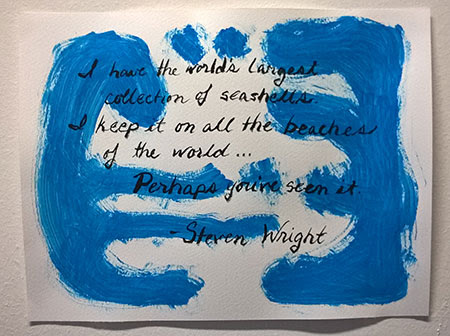 I have the world's largest
collection of seashells.
I keep it on all the beaches
of the world ...
Perhaps you've seen it.
- Steven Wright